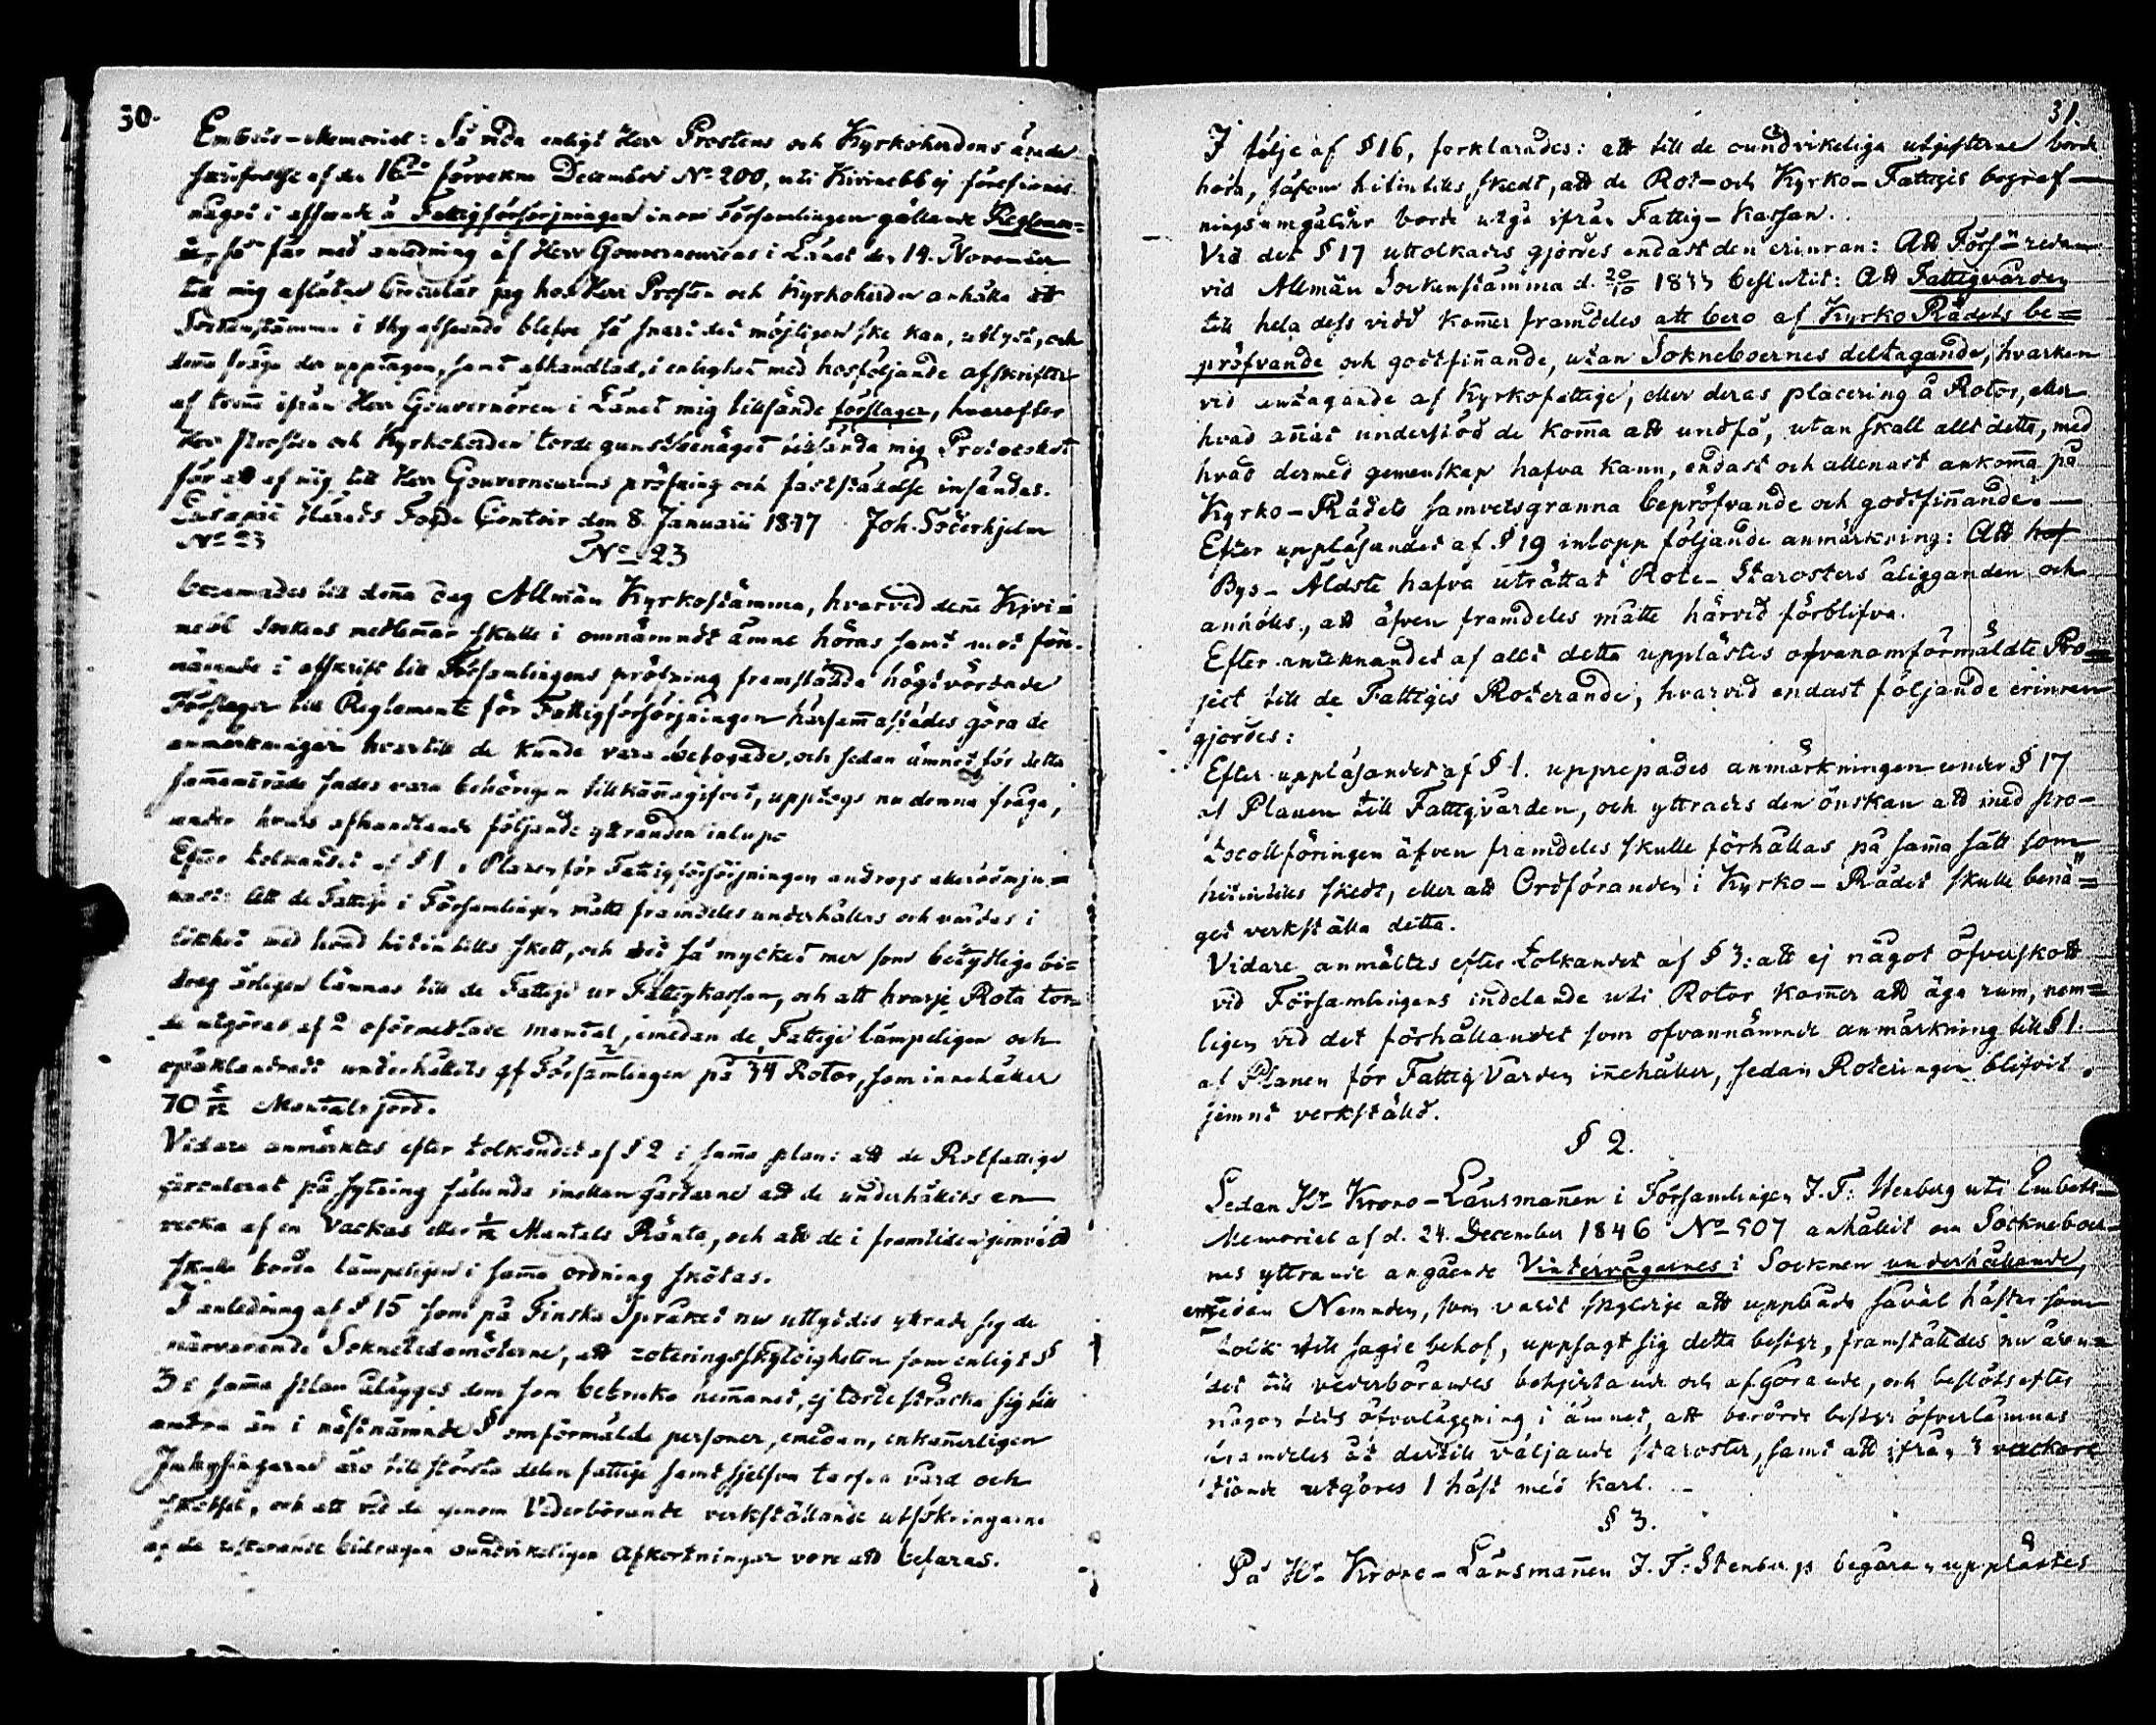 30.
Embets-Memorial: Så vida enligt Herr Prostens och Kyrkoherdens ärade
skrifvelse af den 16de förvekne December No 200, uti Kivinebb ejförefinnes
något i afseende å Fattigförsörjningen inom Församlingen gällande Reglemen=
te, så får med anledning af Herr Gouverneurens i Länet den 14. November
till mig aflåtna Circulär jag hos Herr Prosten och Kyrkoherden anhålla att
Sockenstämma i thy afseende blefve så snart det möjligen ske kan, utlyst, och
denna fråga der upptagen, samt afhandlad, i enlighet med hosföljande afskrifter
af tvenne ifrån Herr Gouvernören i Länet mig tillsände förslager, hvarefter
Herr Prosten och Kyrkoherden torde gunstbenäget tillsända mig Protocollet
för att af mig till Herr Gouverneurens pröfning och fastställelse insändas.
Euräpää Härads Fogde Contoir den 8. Januarii 1847 Joh. Söderhjelm
No 23
No 23
berammades till denna dag Allmän Kyrkostämma, hvarvid denne Kivi=
nebb Sockens medlemmar skulle i omnämndt ämne höras samt mot före-
nämnde i afskrift till Församlingens pröfning framstälda högtvördade
Förslager till Reglemente för Fattigförsörjningen härsammastädes göra de
anmärkningar hvartill de kunde vara befogade, och sedan ämnet för detta
sammanträde sades vara behörigen tillkännagifvet, upptogs nu denna fråga,
under hvars afhandlande följande yttranden inlupo
Efter tolkandet af § 1 i Planen för Fattigförsörjningen androgs allerödmju=
kast: Att de Fattige i Församlingen måtte framdeles underhållas och vårdas i
likhet med hvad hitintills skett, och det så mycket mer som betydlige bi=
drag årligen lämnas till de Fattige ur Fattigkassan, och att hvarje Rota tor=
de utgöras af 2 oförmedlade mantal, emedan de Fattige lämpeligen och
opåklandradt underhållits af Församlingen på 34 Rotor, som innehåller
70 5/12 Mantals jord.
Vidare anmärktes efter tolkandet af § 2 i samma plan: att de Rotfattige
circulerat på sytning sålunda imellan gårdarne att de underhållits en
vecka af en Vackas eller 1/12 Mantals Ränta, och att de i framtiden jemväl
skulle borda lämpeligen i samma ordning skötas.
I anledning af § 15 som på Finska Språket nu uttyddes yttrade sig de
närvarande Sokneledamöterne, att roteringsskyldigheten som enligt §
3 i samma plan ålägges dem som bebruka hemmanet, ej torde sträcka sig till
andra än i näst nämnde § omförmälde personer, emedan, enkannerligen
Inhysingarne äro till största delen fattige samt sjelfva tarfva vård och
skötsel, och att vid de genom Vederbörande verkställande utsökningarne
af de resterande bidragen oundvikeligen afkortningar vore att befaras.
31.
I följe af § 16, forklarades: att till de oundvikeliga utgifterne borde
höra, såsom hitintills skedt, att de Rot- och Kyrko-Fattiges begraf-
ningsumgälder borde utgå ifrån Fattig-Kassan.
Vid det § 17 uttolkades gjordes endast den erinran: Att Förs:n redan
vid Allmän Sockenstämma d. 20/10 1833 beslutit: Att Fattigvården
till hela dess vidd kommer framdeles att bero af Kyrko Rådets be=
pröfvande och godtfinnande, utan Sokneboernes deltagande, hvarken
vid antagande af Kyrkofattige, eller deras placering å Rotor, eller
hvad annat understöd de komma att undfå, utan skall allt detta, med
hvad dermed gemenskap hafva kann, endast och allenast ankomma på
Kyrko-Rådets samvetsgranna bepröfvande och godtfinnande.—
Efter uppläsandet af § 19 inlopp följande anmärkning: Att haf
Bys-Äldste hafva uträttat Rote-Starosters åligganden och
anhölls, att äfven framdeles måtte härvid förblifva.
Efter antecknandet af allt detta upplästes ofvanomförmäldte Pro=
ject till de Fattiges Roterande, hvarvid endast följande erinran
gjordes:
Efter uppläsandet af § 1. upprepades anmärkningen under § 17
af Planen till Fattigvården, och yttrades den önskan att med Pro-
tocollföringen äfven framdeles skulle förhållas på samma sätt som
hitintills skedt, eller att Ordföranden i Kyrko-Rådet skulle benä=
get verkställa detta.
Vidare anmältes efter Tolkandet af § 3: att ej något öfverskott
vid Församlingens indelande uti Rotor kommer att äga rum, nem=
ligen vid det förhållandet som ofvannämnde anmärkning till § 1.
af Planen för FattigVården innehåller, sedan Roteringen blifvit
jemnt verkställd.
§ 2.
Sedan Hr Krono-Länsmannen i Församlingen J. F: Stenberg uti Embets-
Memorial af d. 24. December 1846 No 507 anhållit om Socknebоer-
nes yttrande angående Vintervägarnes i Socknen underhållande,
emedan Nemnden, som varit skyldige att uppbåda såväl hästar som
Folk till sagde behof, uppsagt sig detta bestyr, framställdes nu ären
det till vederbörandes behjertande och afgörande, och beslöts efter
någon tids öfverläggning i ämnet, att berörde bestyr öfverlämnas
framdeles åt dertill väljande Staroster, samt att ifrån 3 vackors
tionde utgöres 1 häst med karl.
§ 3.
På Hr Krono-Länsmannen J. F: Stenbergs begäran upplästes